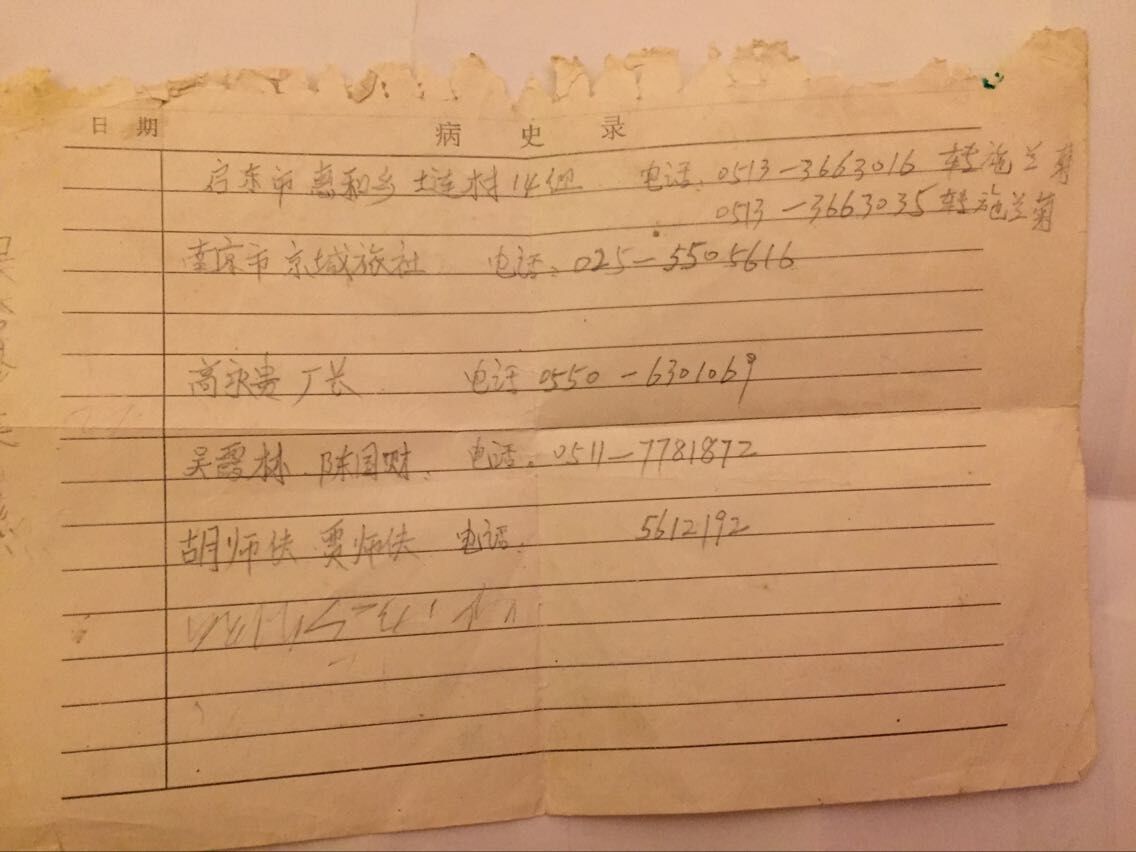 日 期 病 史 录
启东市惠和乡 土连村14组 电话：0513-3663016 转施兰菊
0513-3663035转施兰菊
南京市京城旅社 电话：025-5505616
高永贵厂长 电话 0550-6301069
吴霞林 陈国财. 电话：0511-7781872
胡师伕 贾师伕 电话： 5612192